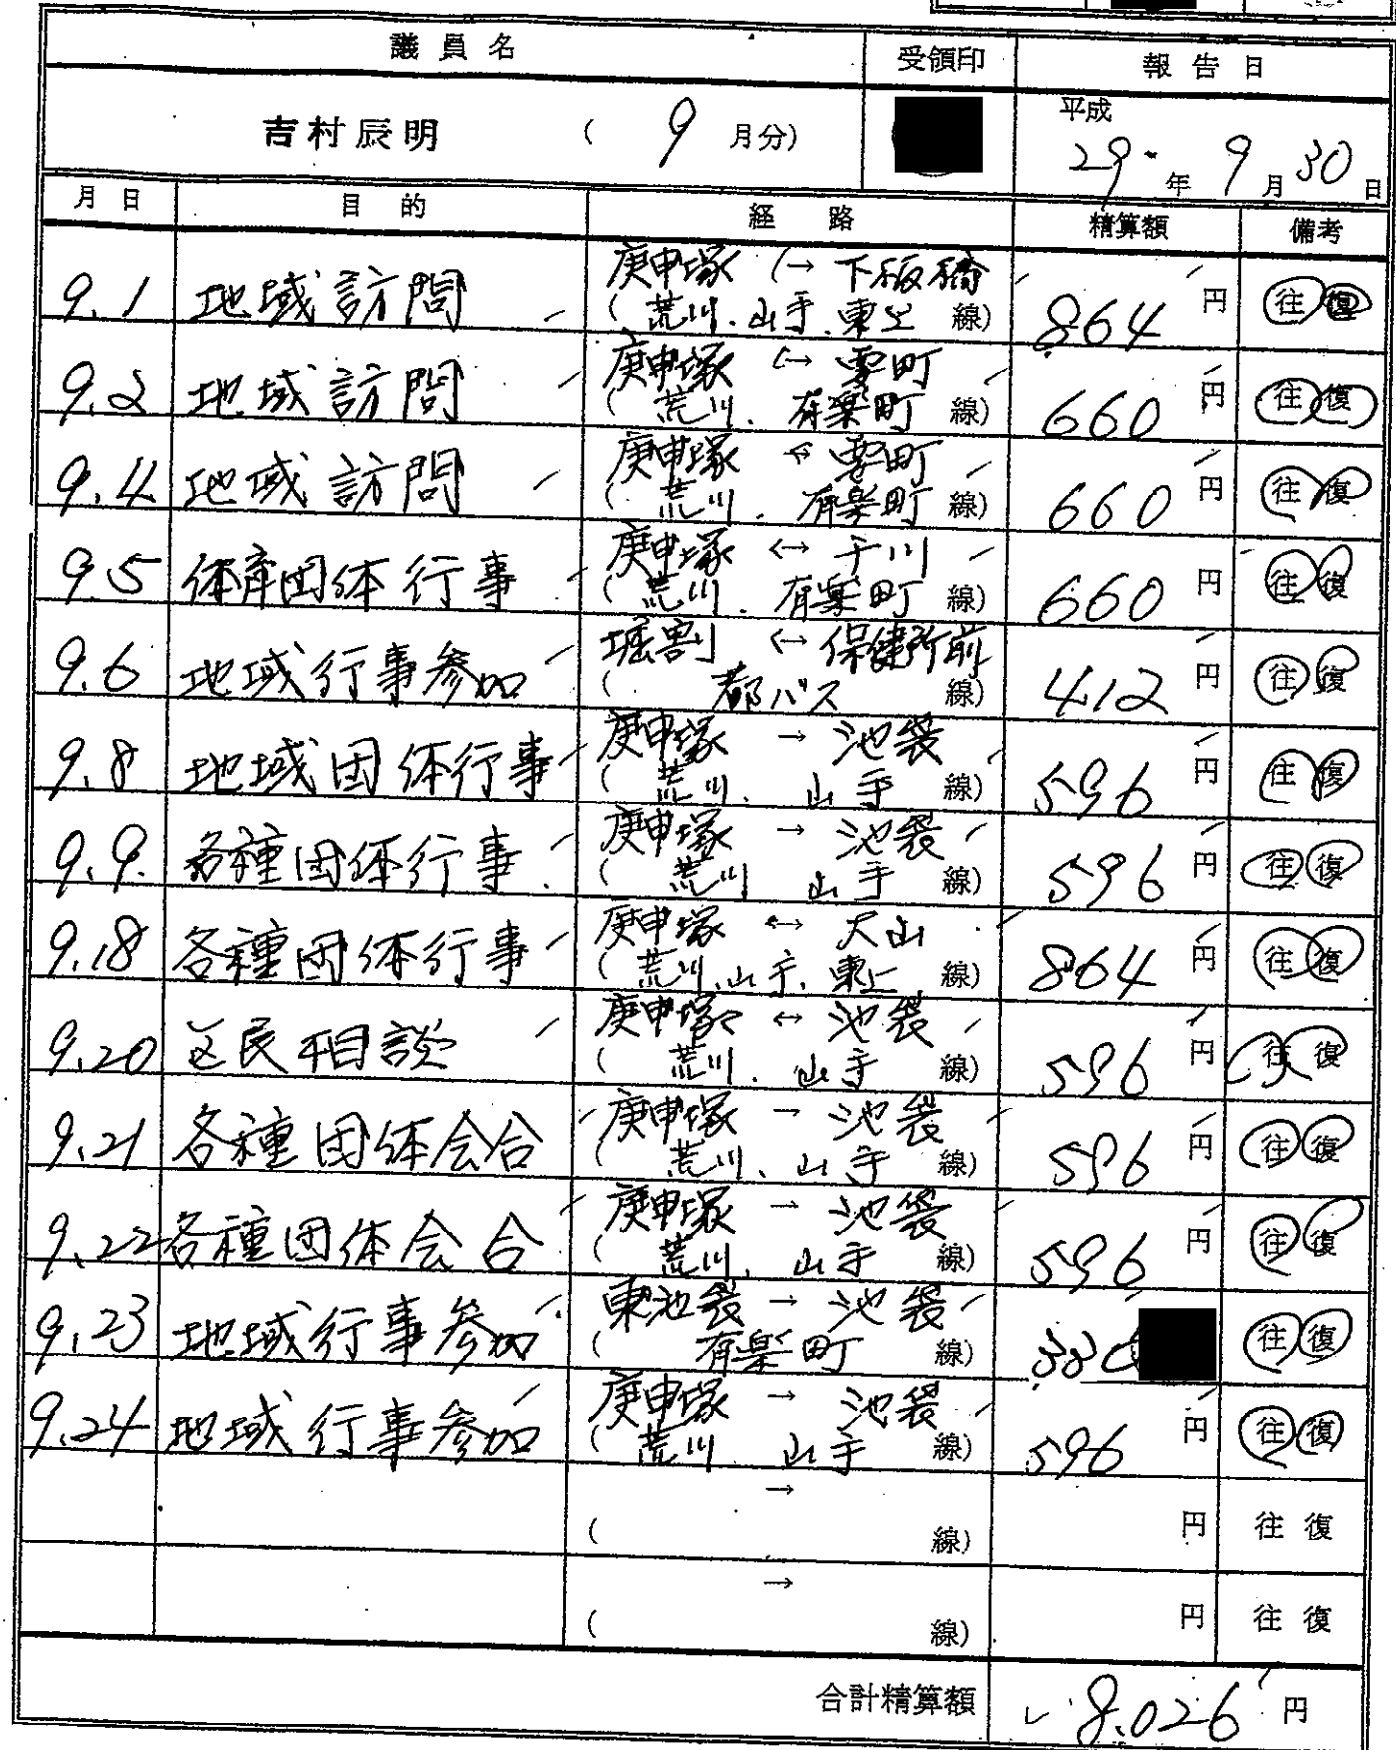 議員名 受領印 報告日
吉村辰明 ( 9 月分) 平成 29 年 9 月 30 日
月日 目的 経路 精算額 備考
9.1 地域訪問 庚申塚 ←→ 下板橋
(荒川、山手、東上 線) 864 円 往復
9.2 地域訪問 庚申塚 ←→ 要町
(荒川、有楽町 線) 660 円 往復
9.4 地域訪問 庚申塚 ←→ 要町
(荒川、有楽町 線) 660 円 往復
9.5 体育団体行事 庚申塚 ←→ 千川
(荒川、有楽町 線) 660 円 往復
9.6 地域行事参加 堀割 ←→ 保健所前
(都バス 線) 412 円 往復
9.8 地域団体行事 庚申塚 → 池袋
(荒川、山手 線) 596 円 往復
9.9. 各種団体行事 庚申塚 → 池袋
(荒川 山手 線) 596 円 往復
9.18 各種団体行事 庚申塚 ←→ 大山
(荒川、山手、東上 線) 864 円 往復
9.20 区民相談 庚申塚 ←→ 池袋
(荒川、山手 線) 596 円 往復
9.21 各種団体会合 庚申塚 → 池袋
(荒川、山手 線) 596 円 往復
9.22 各種団体会合 庚申塚 → 池袋
(荒川、山手 線) 596 円 往復
9.23 地域行事参加 東池袋 → 池袋
(有楽町 線) 330 往復
9.24 地域行事参加 庚申塚 → 池袋
(荒川 山手 線) 596 円 往復
→
( 線) 円 往復
→
( 線) 円 往復
合計精算額 8.026 円